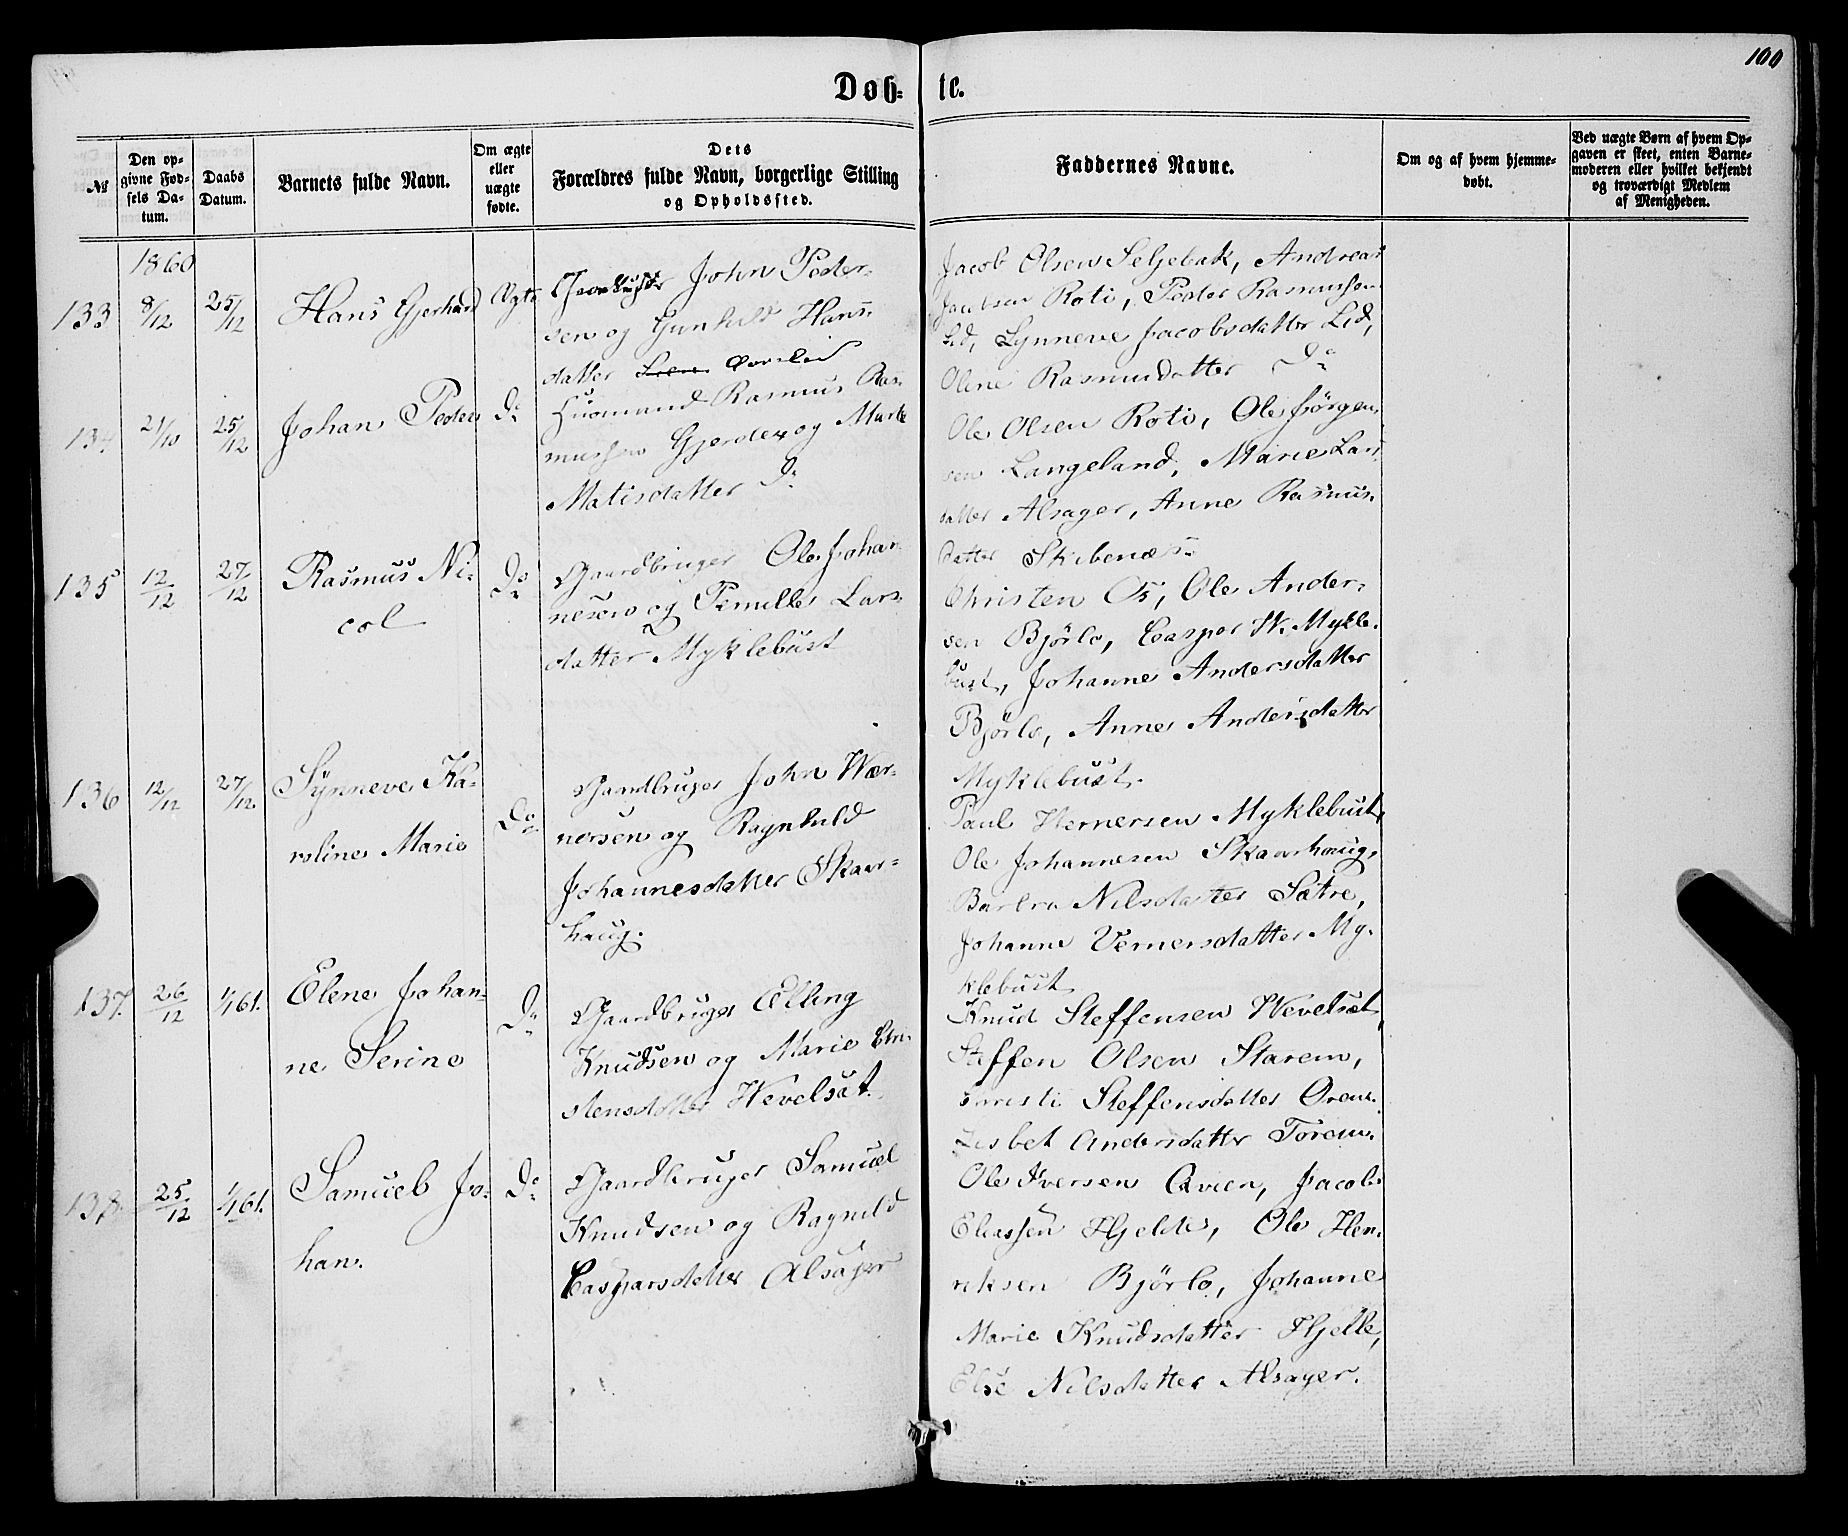 100
Døb- te.
№
Den op-
givne Fød-
sels Da-
tum.
Daabs
Datum.
Barnets fulde Navn.
Om ægte
eller
uægte
fødte.
Dets
Forældres fulde Navn, borgerlige Stilling
og Opholdssted.
Faddernes Navne.
Om og af hvem hjemme-
døbt.
Ved uægte Børn af hvem Op-
gaven er skeet, enten Barne-
moderen eller hvilket bekjendt
og troværdigt Medlem
af Menigheden.
1860
133 8/12 25/12 Hans Gjerhard Ægte
John Peder-
sen og Gunhild Hans-
datter
Jacob Olsen Seljebak, Andreas
Jacobsen Roti, Peder Rasmussen
Lid, Synneve Jacobsdatter Lid,
Oline Rasmusdatter Do
134 21/10 25/12 Johan Peder Do
Huusmand Rasmus Ras-
mussen Gjerde og Marte
Matisdatter Do
Ole Olsen Roti, Ole Jørgen-
sen Langeland, Marie Lars-
datter Alsager, Anne Rasmus-
datter Skibenæs
135 12/12 27/12 Rasmus Ni-
col
Do
Gaardbruger Ole Johan-
nesen og Pernille Lars-
datter Myklebust
Christen Os, Ole Ander-
sen Bjørlo, Casper W. Mykle-
bust, Johanne Andersdatter
Bjørlo, Anne Andersdatter
Myklebust.
136 12/12 27/12 Synneve Ka-
roline Marie
Do
Gaardbruger John Wær-
nersen og Ragnhild
Johannesdatter Skaar-
haug.
Paul Wernersen Myklebust,
Ole Johannesen Skaarhaug,
Barbra Nilsdatter Sætre,
Johanne Vernersdatter My-
klebust
137. 26/12 1/1 61. Elene Johan-
ne Serine
Do
Gaardbruger Elling
Knudsen og Marie
stensdatter Wevelsæt.
Knud Steffensen Wevelsæt,
Steffen Olsen Starem,
Steffensdatter
Lisbet Andersdatter
138. 25/12 1/1 61. Samuel Jo-
han.
Do
Gaardbruger Samuel
Knudsen og Ragnild
Caspersdatter Alsager
Ole Iversen Qvien, Jacob
Eliassen Hjelle, Ole Hen-
riksen Bjørlo, Johanne
Marie Knudsdatter Hjelle,
Else Nilsdatter Alsager.